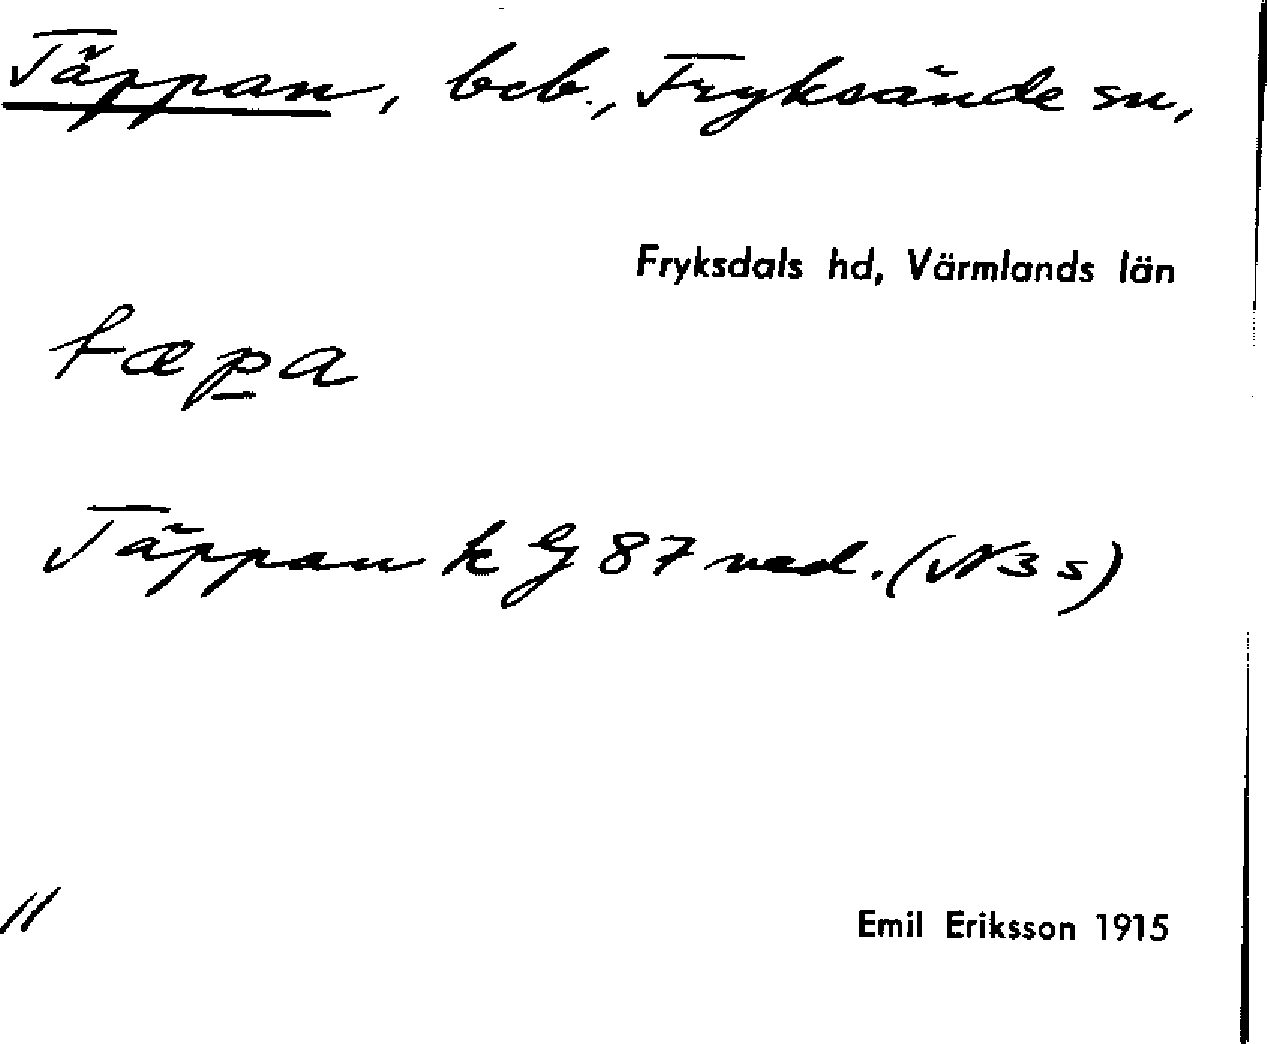 Täppan, beb., Fryksände sn,
Fryksdals hd, Värmlands län
tæpa
Täppan k G 87 ned. (N 3 s)
11
Emil Eriksson 1915